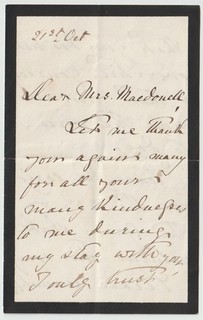 21st Oct
Dear Mrs. Macdonell,
Let me thank
you again many
for all your
many kindnesses
to me during
my stay with you,
I only trust